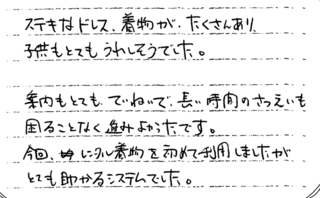 ステキなドレス、着物が、たくさんあり、
子供もとてもうれしそうでした。
案内もとても、ていねいで、長い時間のさつえいも
困ることなく進みよかったです。
今回、レンタル着物を初めて利用しましたが
とても助かるシステムでした。